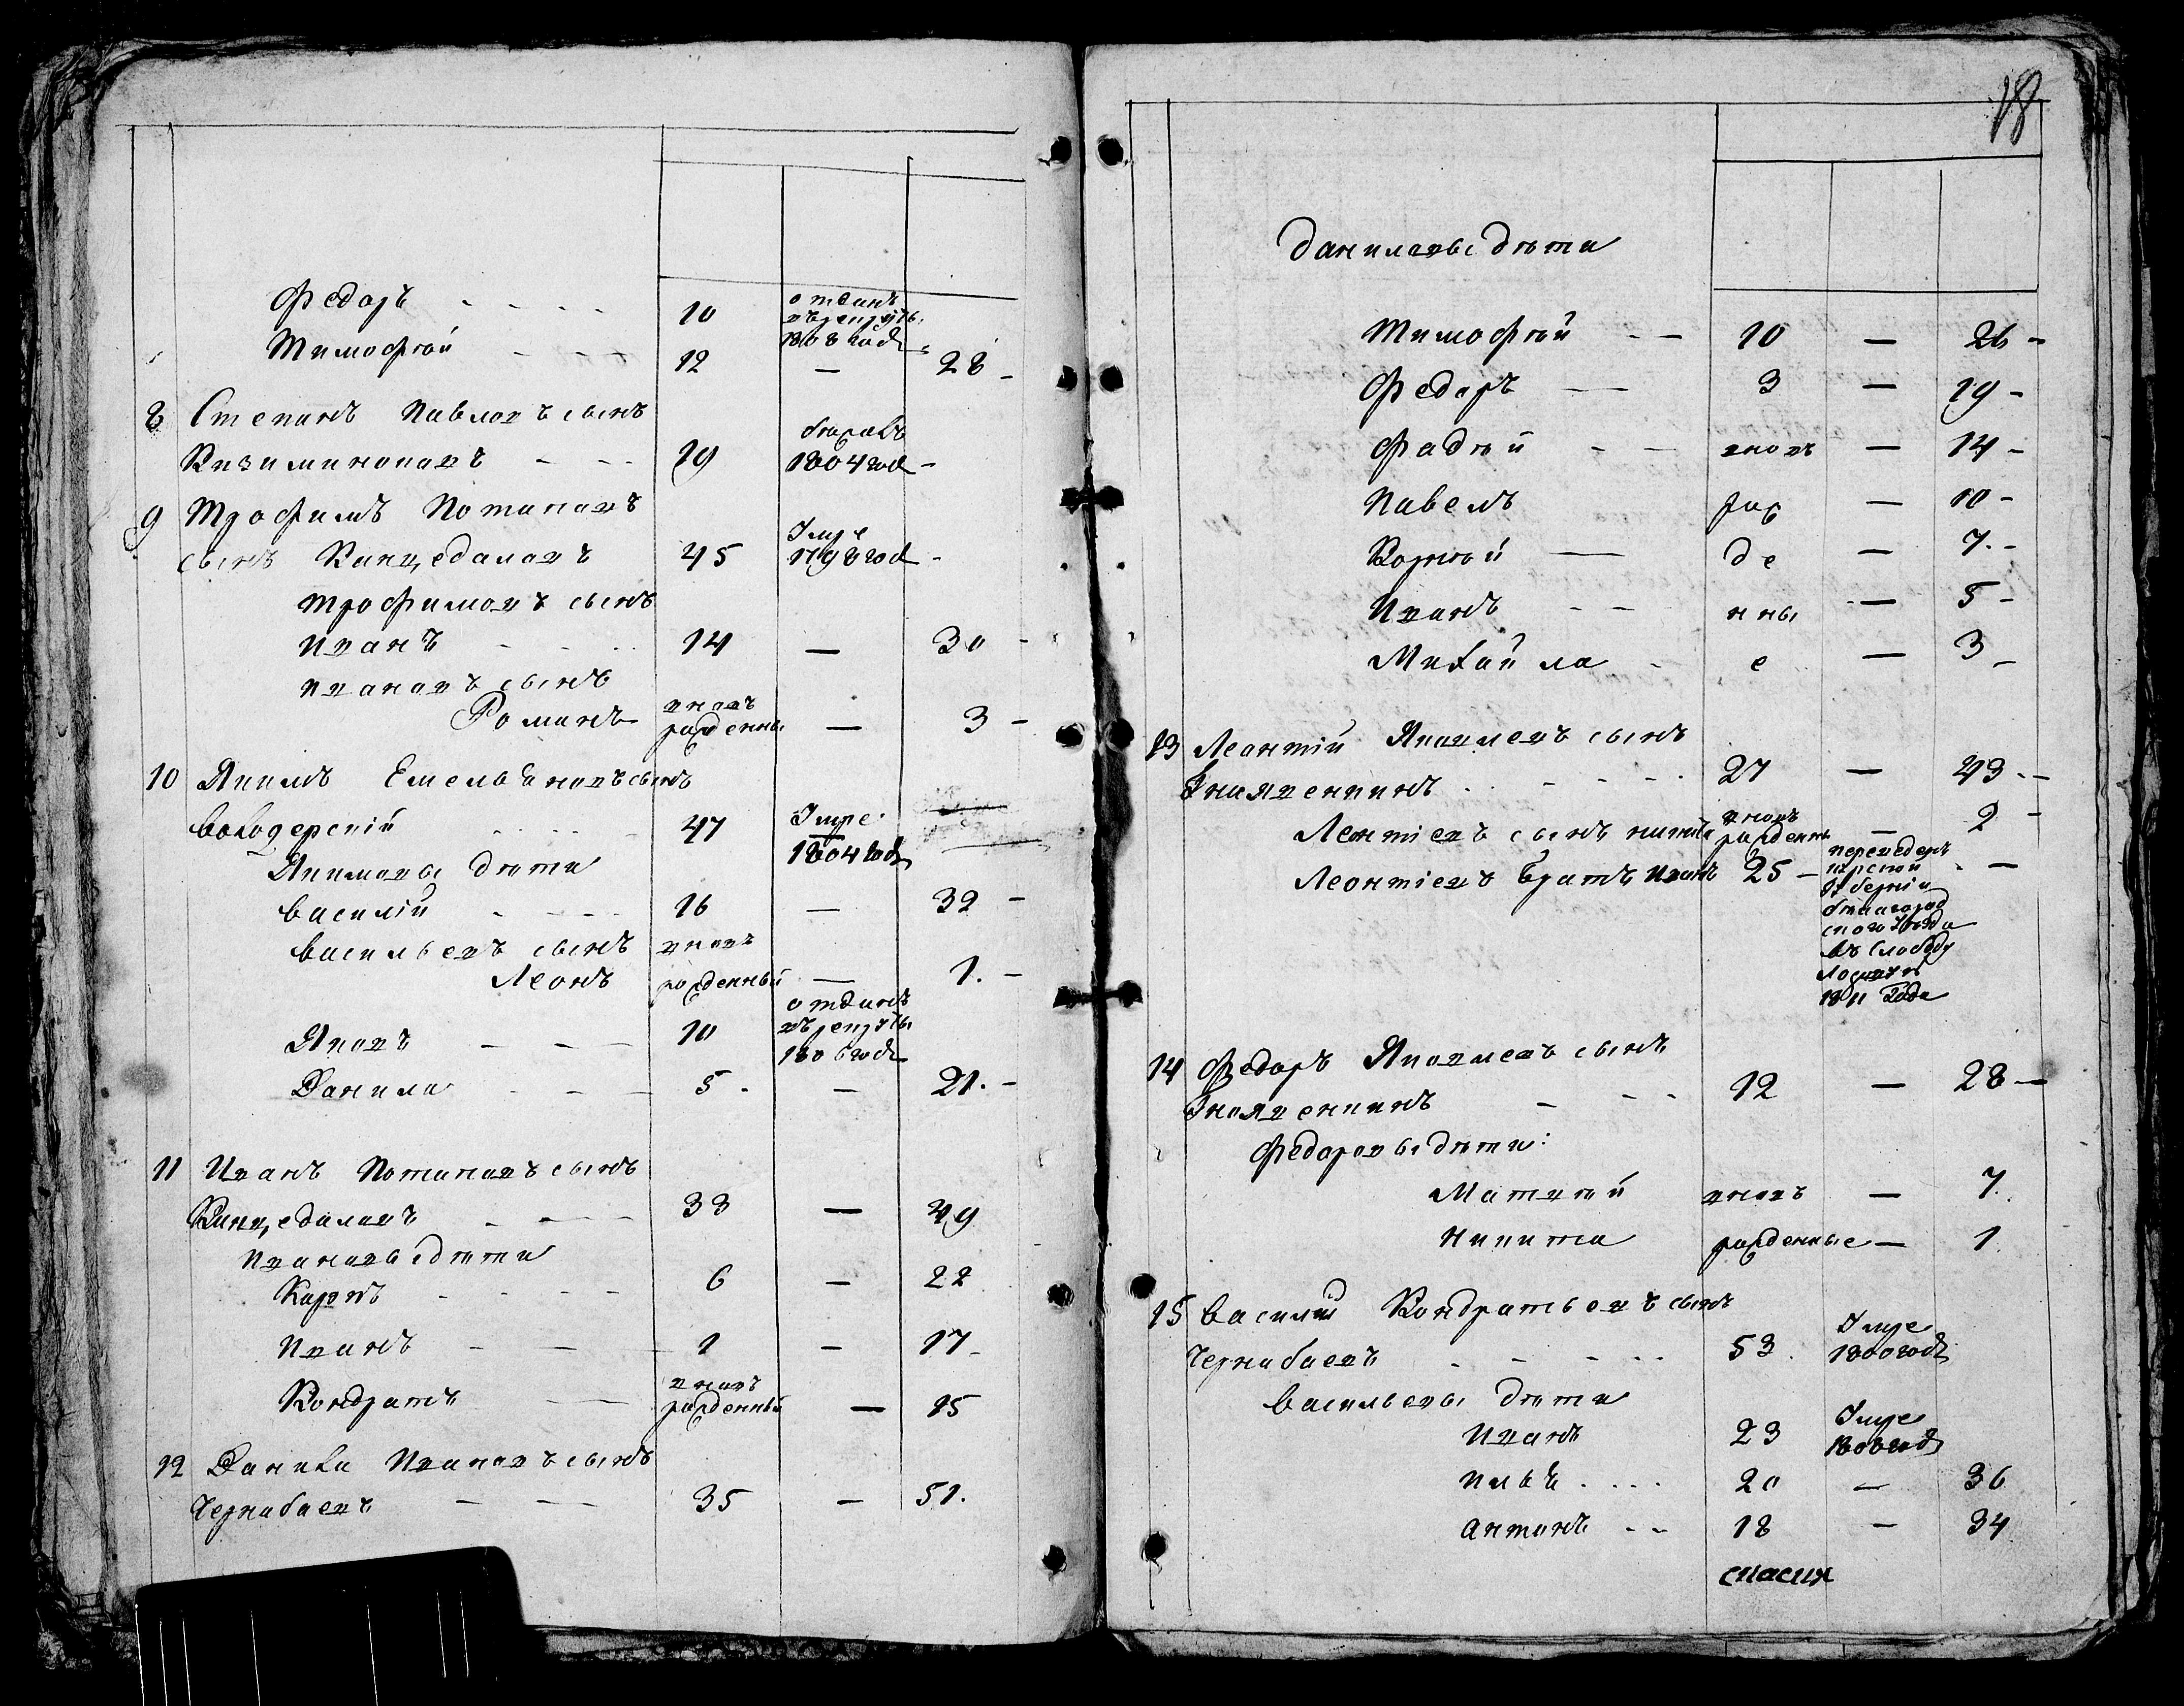 Федоръ - - - - 10 отданъ
въ рекруты
1808 годѣ
Тимофѣй - - - 12 — 28 -
8 Степанъ Павловъ сынъ
19 бѣжалъ
1804 годѣ -
9 Трофимъ Потаповъ
сынъ Канцедаловъ 45 Умре
1798 годѣ -
Трофимовъ сынъ
Иванъ - - - 14 — 30 -
Ивановъ сынъ
Романъ вновь
рожденны — 3 -
10 Якимъ Емельяновъ сынъ
47 Умре
1804 годѣ
Якимовы дѣти
Василій - - - - 16 — 32 -
Васильевъ сынъ вновь
Леонъ рожденный — 1. -
Яковъ - - - 10 отданъ
въ рекруты
1806 годѣ
Данила - - - 5 - — 21. -
11 Иванъ Потаповъ сынъ
Канцедаловъ - - - 33 — 49
Ивановы дѣти
Карпъ - - - - 6 — 22
Иванъ - - - 1 — 17 -
Кондратъ - - вновь
рожденный — 15
12 Данила Ивановъ сынъ
Чернобаевъ - - - 35 — 51.
18
Даниловы дѣти
Тимофѣй - - 10 — 26 -
Федоръ - - 3 — 19 -
Фадѣй - - вновь — 14 -
Павелъ рож — 10 -
Корнѣй — де — 7. -
Иванъ - - нны — 5 -
Михайла - е — 3 -
13 Леонтій Яковлевъ сынъ
- - - - 27 — 43 - -
Леонтіевъ сынъ Никита вновь
рожденны — 2 -
Леонтіевъ братъ Иванъ 25 - переведенъ
Курской
Губерніи
Бѣлагород
скаго Уѣзда
въ Слободу
1811 Года
14 Федоръ Яковлевъ сынъ
- - - 12 — 28 —
Федоровы дѣти:
Матвѣй вновь — 7.
Никита рожденные — 1.
15 Василій Кондратьевъ сынъ
Чернобаевъ - - - - 53. Умре
1800 годѣ
Васильевы дѣти
Иванъ 23 Умре
1808 годѣ
Илья . . . . 20 — 36
Антонъ - - 18 — 34